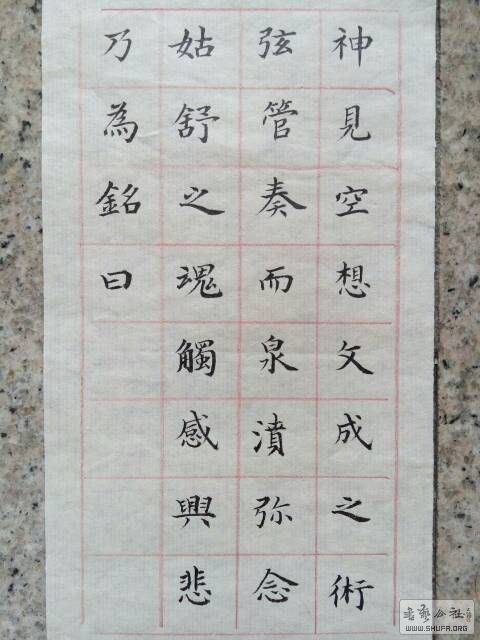 神見空想文成之術
弦管奏而泉濆弥念
姑舒之魂觸感興悲
乃為銘曰
WWW.SHUFA.ORG